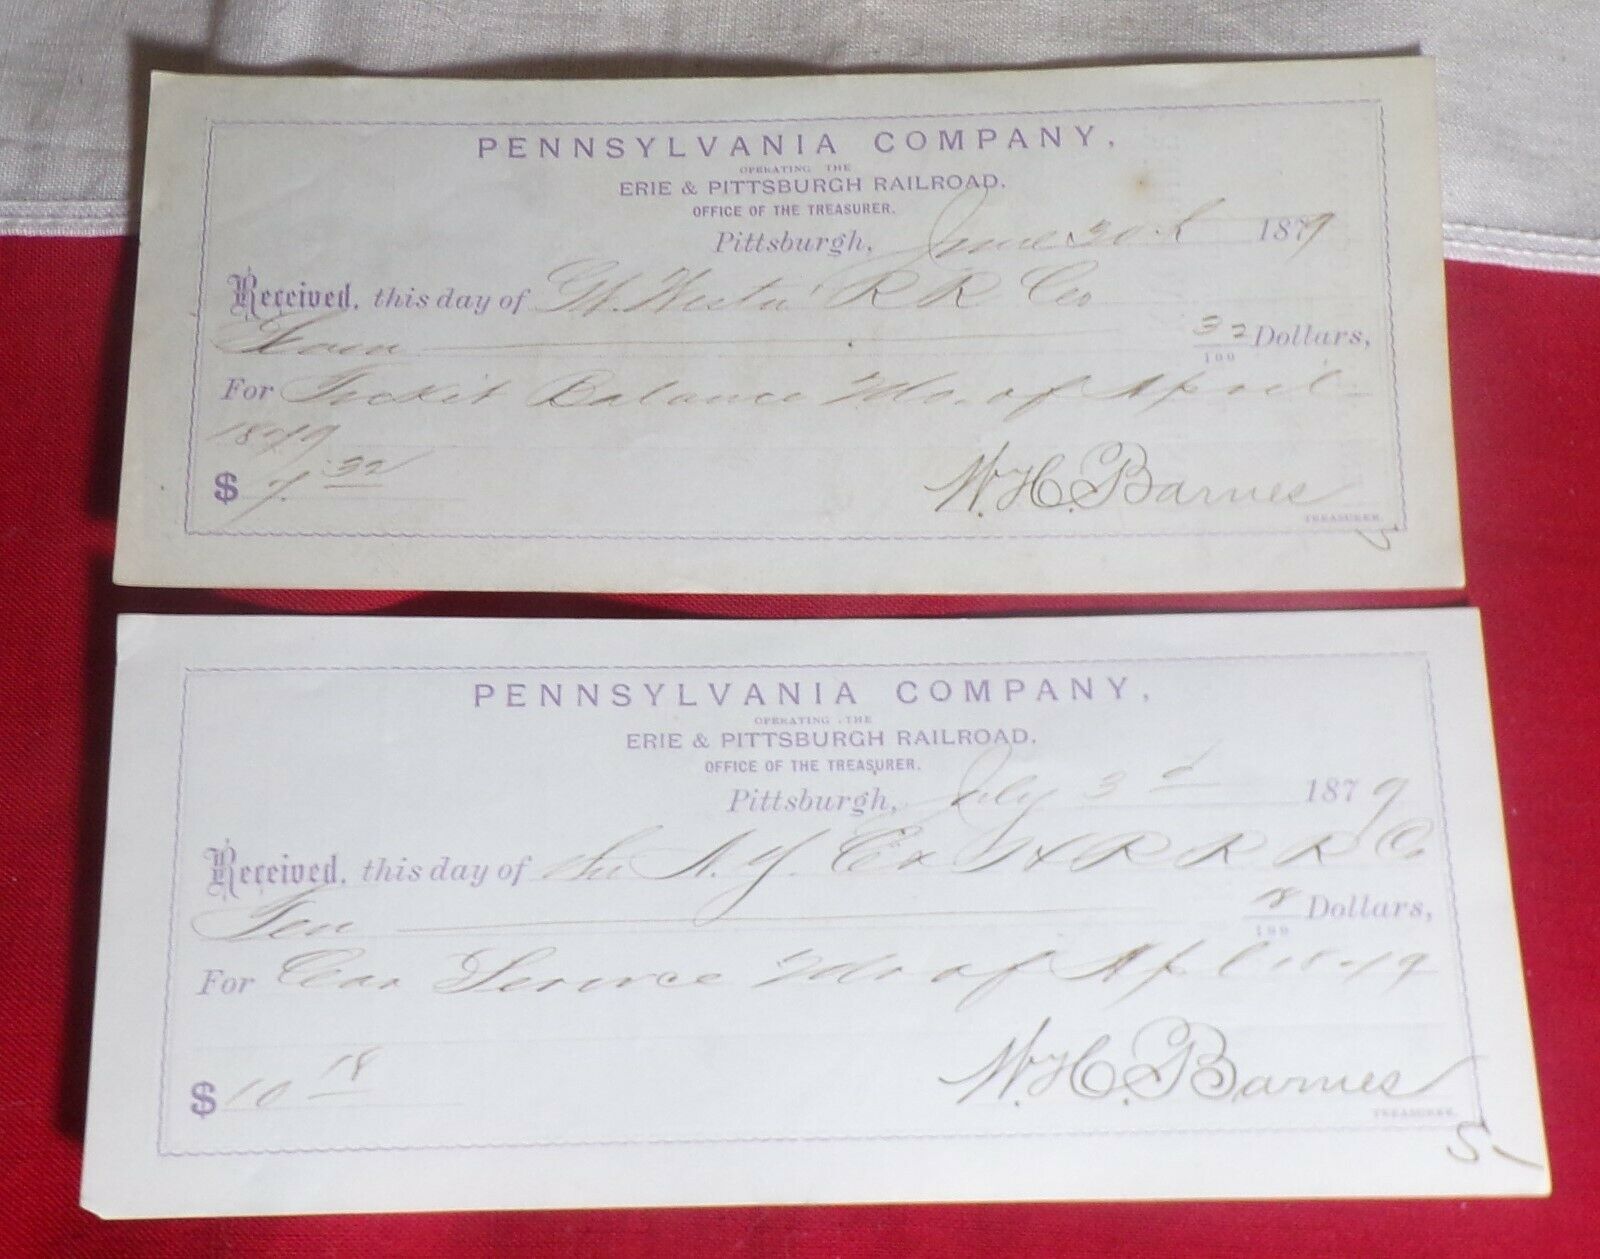 PENNSYLVANIA COMPANY,
OPERATING THE
ERIE & PITTSBURGH RAILROAD.
OFFICE OF THE TREASURER.
Pittsburgh, June 30th 1879
Received, this day of Gt. Westn R R Co
32/100 Dollars,
For Ticket Balance Mo. of April
1879
$ 32
W. H. Barnes
TREASURER.
PENNSYLVANIA COMPANY,
OPERATING THE
ERIE & PITTSBURGH RAILROAD.
OFFICE OF THE TREASURER.
Pittsburgh, July 3d 1879
Received, this day of the N. Y. R R Co
Ten 18/100 Dollars,
For Car Service Mo of Apl 1879
$ 10 18
W. H. Barnes
TREASURER.